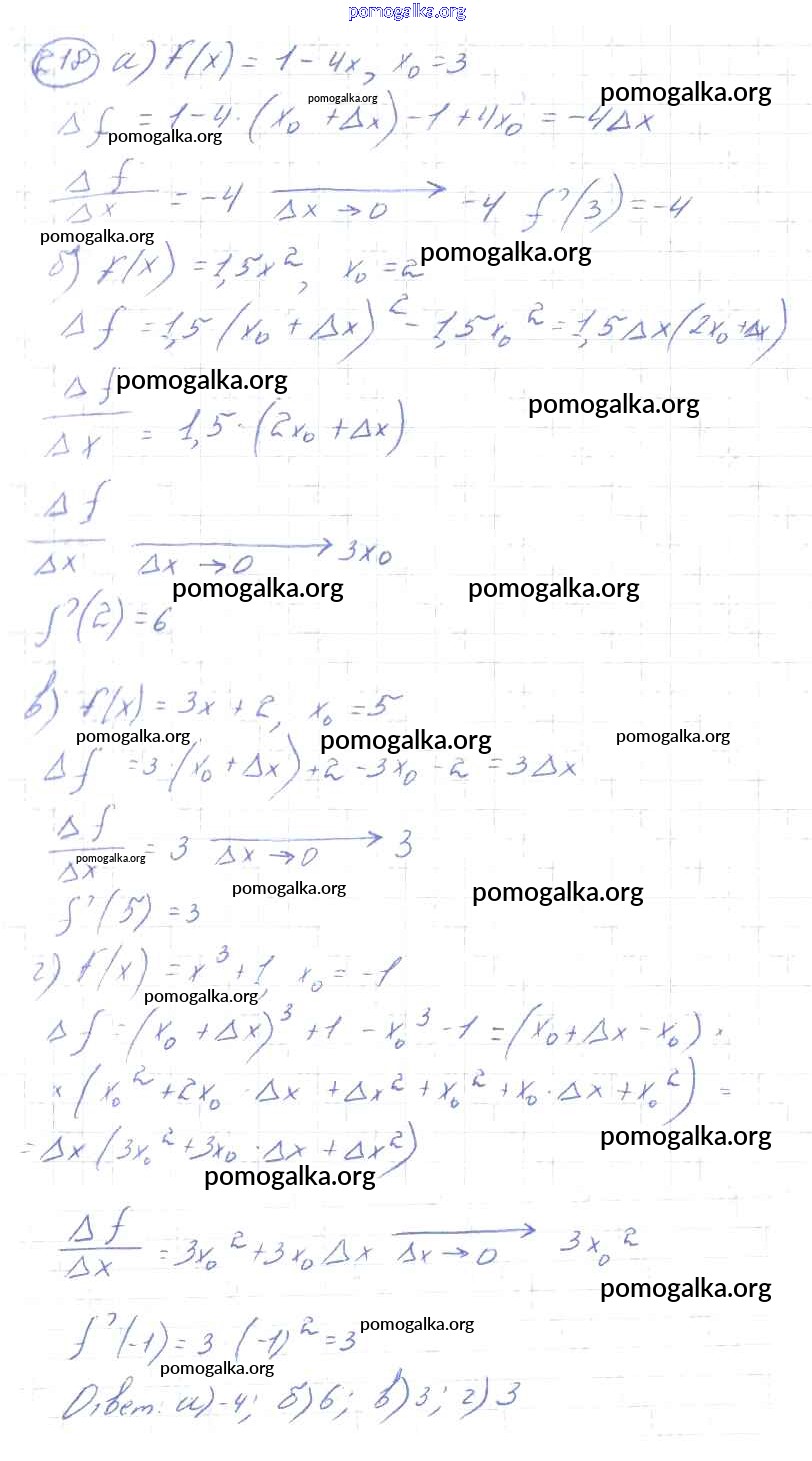 pomogalka.org
218 а) f(x) = 1 - 4x, x₀ = 3
pomogalka.org
pomogalka.org
Δf = 1 - 4·(x₀ + Δx) - 1 + 4x₀ = -4Δx
pomogalka.org
Δf/Δx = -4 →(Δx → 0) -4 f'(3) = -4
pomogalka.org
pomogalka.org
б) f(x) = 1,5x², x₀ = 2
Δf = 1,5(x₀ + Δx)² - 1,5x₀² = 1,5Δx(2x₀ + Δx)
pomogalka.org
pomogalka.org
Δf/Δx = 1,5·(2x₀ + Δx)
Δf/Δx →(Δx → 0) 3x₀
pomogalka.org pomogalka.org
f'(2) = 6
в) f(x) = 3x + 2, x₀ = 5
pomogalka.org pomogalka.org pomogalka.org
Δf = 3·(x₀ + Δx) + 2 - 3x₀ - 2 = 3Δx
Δf/Δx = 3 →(Δx → 0) 3
pomogalka.org
pomogalka.org pomogalka.org
f'(5) = 3
г) f(x) = x³ + 1, x₀ = -1
pomogalka.org
Δf = (x₀ + Δx)³ + 1 - x₀³ - 1 = (x₀ + Δx - x₀) ×
× (x₀² + 2x₀·Δx + Δx² + x₀² + x₀·Δx + x₀²) =
pomogalka.org
= Δx(3x₀² + 3x₀·Δx + Δx²)
pomogalka.org
Δf/Δx = 3x₀² + 3x₀Δx →(Δx → 0) 3x₀²
pomogalka.org
f'(-1) = 3 (-1)² = 3
pomogalka.org
pomogalka.org
Ответ: а) -4; б) 6; в) 3; г) 3